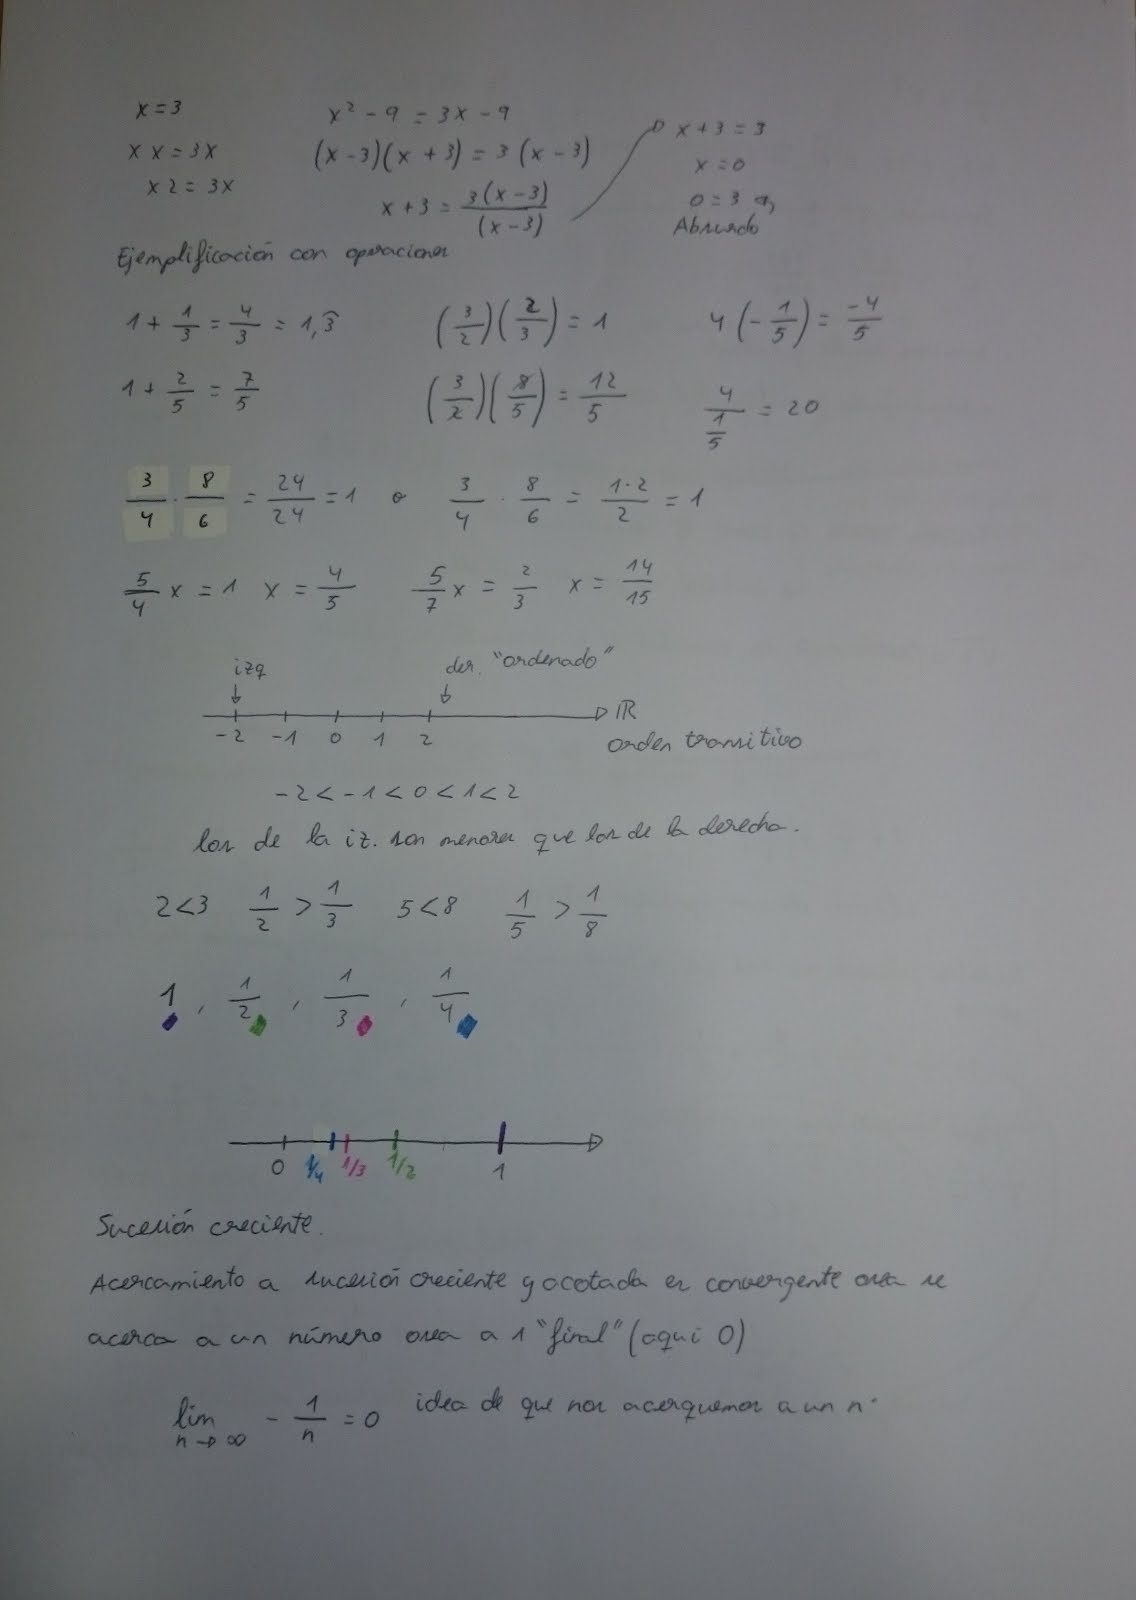 x = 3
x x = 3x
x2 = 3x
x² - 9 = 3x - 9
(x-3)(x+3) = 3(x-3)
x+3 = 3(x-3)/(x-3)
x+3 = 3
x = 0
0 = 3
Absurdo
Ejemplificación con operaciones
1 + 1/3 = 4/3 = 1,3̂ (3/2)(2/3) = 1 4(-1/5) = -4/5
1 + 2/5 = 7/5 (3/2)(8/5) = 12/5 4/(1/5) = 20
3/4 · 8/6 = 24/24 = 1 o 3/4 · 8/6 = 1·2/2 = 1
5/4 x = 1 x = 4/5 5/7 x = 2/3 x = 14/15
izq der. "ordenado"
-2 -1 0 1 2 ℝ
orden transitivo
-2 < -1 < 0 < 1 < 2
los de la iz. son menores que los de la derecha.
2<3 1/2 > 1/3 5<8 1/5 > 1/8
1, 1/2, 1/3, 1/4
0 1/4 1/3 1/2 1
Sucesión creciente.
Acercamiento a sucesión creciente y acotada es convergente osea se
acerca a un número osea a 1 "final" (aqui 0)
lim n→∞ - 1/n = 0 idea de que nos acerquemos a un nº